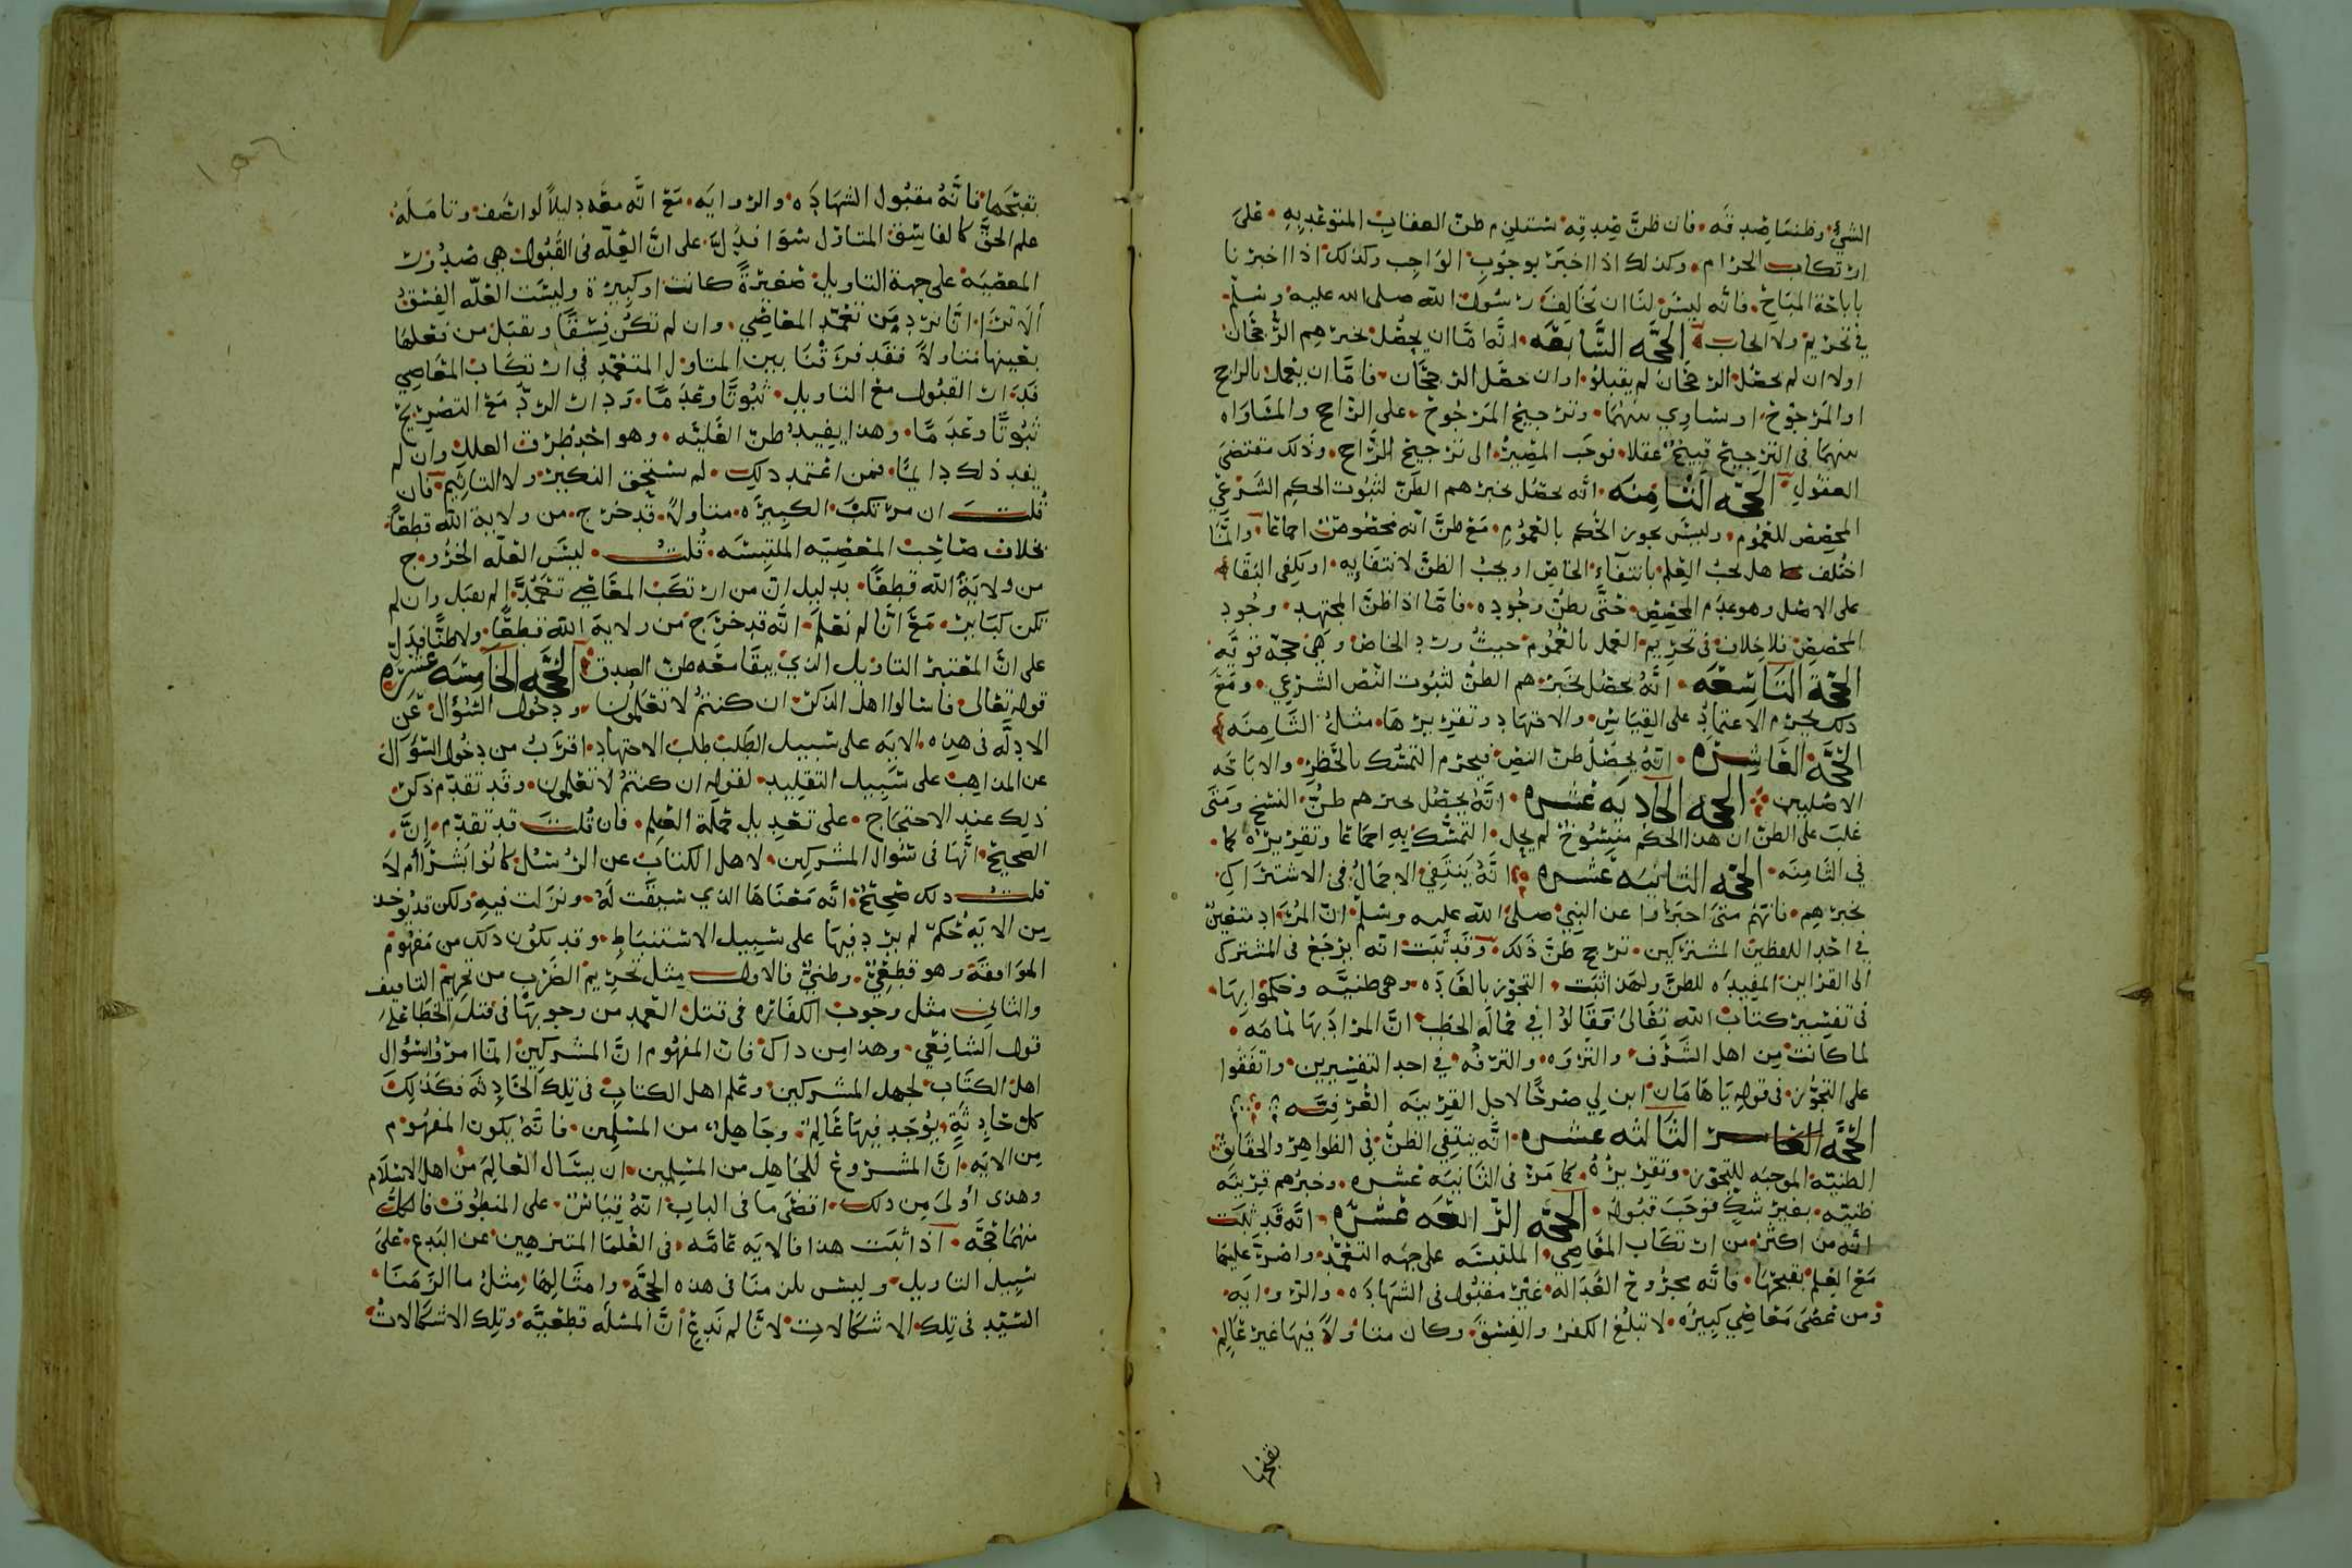 الشيء وظننا صدقه فان ظن صدقه يستلزم ظن العقاب المتوعد به على
ارتكاب الحرام وكذلك اذا اخبر بوجوب الواجب وكذلك اذا اخبرنا
باباحة المباح فانه ليس لنا ان نخالف رسول الله صلى الله عليه وسلم
في تحريم ولا ايجاب الحجه السابعه انه اما ان يحصل بخبرهم الرجحان
اولا ان لم يحصل الرجحان لم يقبلوا وان حصل الرجحان فاما ان يعمل بالراجح
او المرجوح او يساوي بينهما وترجيح المرجوح على الراجح والمساواه
بينهما في الترجيح قبيح عقلا فوجب المصير الى ترجيح الراجح وذلك مقتضى
العقول الحجه الثامنه انه يحصل بخبرهم الظن لثبوت الحكم الشرعي
المخصص للعموم وليس يجوز الحكم بالعموم مع ظن انه مخصوص اجماعا وانما
اختلف هل يجب العلم بانتفاء الخاص او يجب الظن لانتفايه او يكفي البقاء
على الاصل وهو عدم المخصص حتى يظن وجوده فاما اذا ظن المجتهد وجود
المخصص فلا خلاف في تحريم العمل بالعموم حيث ورد الخاص وهي حجه قويه
الحجة التاسعه انه يحصل بخبرهم الظن لثبوت النص الشرعي ومع
ذلك يحرم الاعتماد على القياس والاجتهاد وتقريرها مثل الثامنه
الحجه العاشره انه يحصل ظن النص فيحرم التمسك بالحظر والاباحه
الاصليين الحجه الحاديه عشره انه يحصل بخبرهم ظن النسخ ومتى
غلب على الظن ان هذا الحكم منسوخ لم يحل التمسك به اجماعا وتقريره كما
في الثامنه الحجه الثانيه عشره انه ينتفي الاجمال في الاشتراك
بخبرهم فانهم متى اخبروا عن النبي صلى الله عليه وسلم ان المراد متعين
في احد اللفظين المشتركين ترجح ظن ذلك وقد ثبت انه يرجع في المشترك
الى القراين المفيده للظن ولهذا ثبت التجوز بالعاده وهي ظنيه وحكموا بها
في تفسير كتاب الله تعالى فقالوا في حمالة الحطب ان المراد بها نمامه
لما كانت من اهل الشرف والثروه والترفه في احد التفسيرين واتفقوا
على التجوز في قوله يا هامان ابن لي صرحا لاجل القرينه العرفيه
الحجه الثالثه عشره انه ينتفي الظن في الظواهر والحقايق
الظنيه الموجبه للتجوز وتقريره كما مر في الثانيه عشره وخبرهم قرينه
ظنيه بغير شك فوجب قبوله الحجه الرابعه عشره انه قد ثبت
انه من اكثر من ارتكاب المعاصي الملتبسه على جهه التعمد واصر عليها
مع العلم بقبحها فانه مجروح العداله غير مقبول في الشهاده والروايه
ومن عصى معاصي كبيره لا تبلغ الكفر والفسق وكان متاولا فيها غير عالم
بقبحها
بقبحها فانه مقبول الشهاده والروايه مع انه معه دليلا لو انصف وتامله
علم الحق كالفاسق المتاول سوا فدل على ان العله في القبول هي صدور
المعصيه على جهة التاويل صغيرة كانت او كبيرة وليست العله الفسق
الا ترى انا نرد من تعمد المعاصي وان لم تكن فسقا ونقبل من فعلها
بعينها متاولا فقد فرقنا بين المتاول المتعمد في ارتكاب المعاصي
فدار القبول مع التاويل ثبوتا وعدما ودار الرد مع التصريح
ثبوتا وعدما وهذا يفيد ظن العليه وهو احد طرق العلل وان لم
يفد ذلك دايما فمن اعتمد ذلك لم يستحق النكير ولا التاثيم فان
قلت ان مرتكب الكبيره متاولا قد خرج من ولاية الله قطعا
بخلاف صاحب المعصيه الملتبسه قلت ليس العله الخروج
من ولاية الله قطعا بدليل ان من ارتكب المعاصي تعمدا لم يقبل وان لم
تكن كباير مع انا لم نعلم انه قد خرج من ولاية الله قطعا ولا ظنا فدل
على ان المعتبر التاويل الذي يبقا معه ظن الصدق الحجه الخامسه عشره
قوله تعالى فاسالوا اهل الذكر ان كنتم لا تعلمون ودخول السؤال عن
الادله في هذه الايه على سبيل الطلب طلب الاجتهاد اقرب من دخول السؤال
عن المذاهب على سبيل التقليد لقوله ان كنتم لا تعلمون وقد تقدم ذكر
ذلك عند الاحتجاج على تعديل حملة العلم فان قلت قد تقدم ان
الصحيح انها في سؤال المشركين لاهل الكتاب عن الرسل كانوا بشرا ام لا
قلت ذلك صحيح انه معناها الذي سيقت له ونزلت فيه ولكن قد يوخذ
من الايه حكم لم يرد فيها على سبيل الاستنباط وقد يكون ذلك من مفهوم
الموافقه وهو قطعي وظني فالاول مثل تحريم الضرب من تحريم التافيف
والثاني مثل وجوب الكفاره في قتل العمد من وجوبها في قتل الخطا على
قول الشافعي وهذا من ذاك فان المفهوم ان المشركين انما امروا بسؤال
اهل الكتاب لجهل المشركين وعلم اهل الكتاب في تلك الحادثه فكذلك
كل حادثة يوجد فيها عالم وجاهل من المسلمين فانه يكون المفهوم
من الايه ان المشروع للجاهل من المسلمين ان يسال العالم من اهل الاسلام
وهذى اولى من ذلك اقصى ما في الباب انه قياس على المنطوق فالكل
منهما حجه اذا ثبت هذا فالايه عامه في العلما المتنزهين عن البدع على
سبيل التاويل وليس يلزمنا في هذه الحجه وامثالها مثل ما الزمنا
السيد في تلك الاشكالات لانا لم ندع ان المسئله قطعيه وتلك الاشكالات